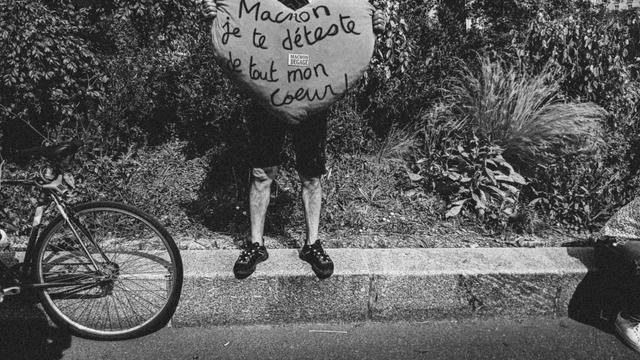 Macron
je te déteste
MACRON
DÉGAGE
de tout mon
coeur!